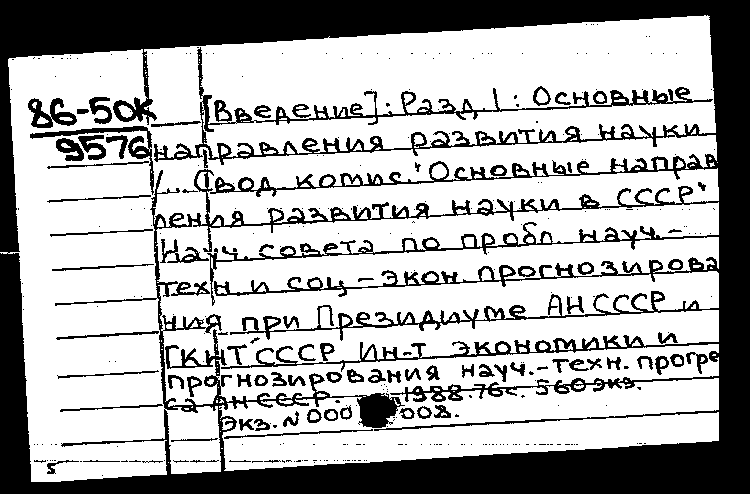 86-50К
9576
[Введение]: Разд. 1: Основные
направления развития науки
/... Свод. комис. "Основные направ
ления развития науки в СССР"
Науч. совета по пробл. науч.-
техн. и соц-экон. прогнозирова
ния при Президиуме АН СССР и
ГКНТ СССР, Ин-т экономики и
прогнозирования науч.-техн. прогре
са АН СССР. 1988. 76с. 560 экз.
Экз. N 000 008.
5